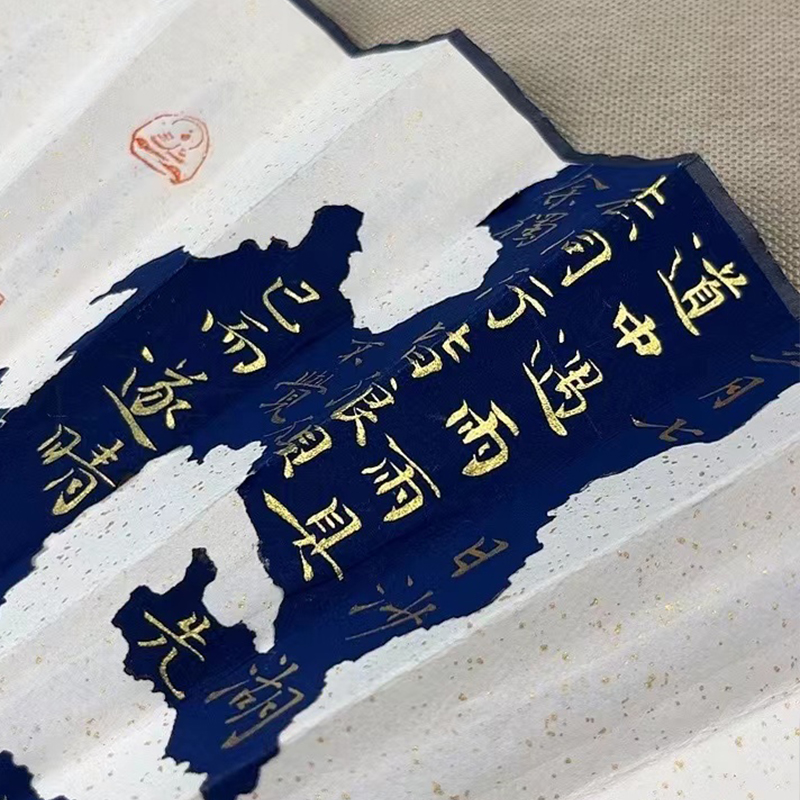 月七日沙湖
道中遇雨雨具先
去同行皆狼狽
余獨不覺
已而遂晴